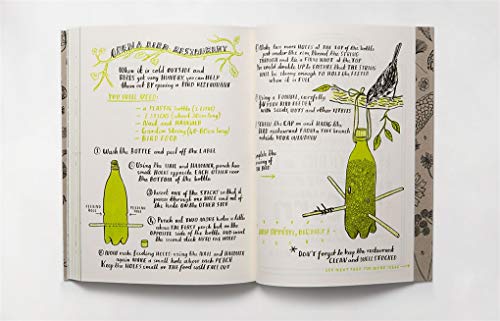 OPEN A BIRD RESTAURANT
When it is cold OUTSIDE and
BIRDS get very HUNGRY you can HELP
them out by opening a BIRD RESTAURANT
YOU WILL NEED:
- a PLASTIC bottle (1 litre)
- 2 STICKS (about 20cm long)
- Nail and HAMMER
- Garden String (40-60cm long)
- BIRD FOOD
1 Wash the BOTTLE and peel off the LABEL
2 Using the NAIL and HAMMER, punch two
small HOLES opposite EACH OTHER near
the BOTTOM of the bottle
3 Insert one of the STICKS so that it
passes through one HOLE and out of
the hole on the OTHER SIDE
FEEDING HOLE
FEEDING HOLE
4 Punch out TWO MORE holes a little
above the first perch but on the
opposite side of the bottle and insert
the second stick INTO the HOLES
5 NOW make FEEDING HOLES: use the NAIL and HAMMER
again. Make a small hole above each PERCH
Keep the HOLES small or the food will FALL OUT
Make two more HOLES at the TOP of the bottle
just under the rim. Thread the STRING
through and tie a firm KNOT at the TOP
to HOLD the FEEDER
when it is FULL
Using a FUNNEL, carefully
BIRD FEEDER
with SEEDS, NUTS and other
the CAP on and HANG the
BIRD RESTAURANT from a
outside YOUR WINDOW
BON APPETIT, BIRDIES!
* DON'T forget to keep the restaurant
CLEAN and WELL STOCKED
SEE NEXT PAGE FOR MORE IDEAS